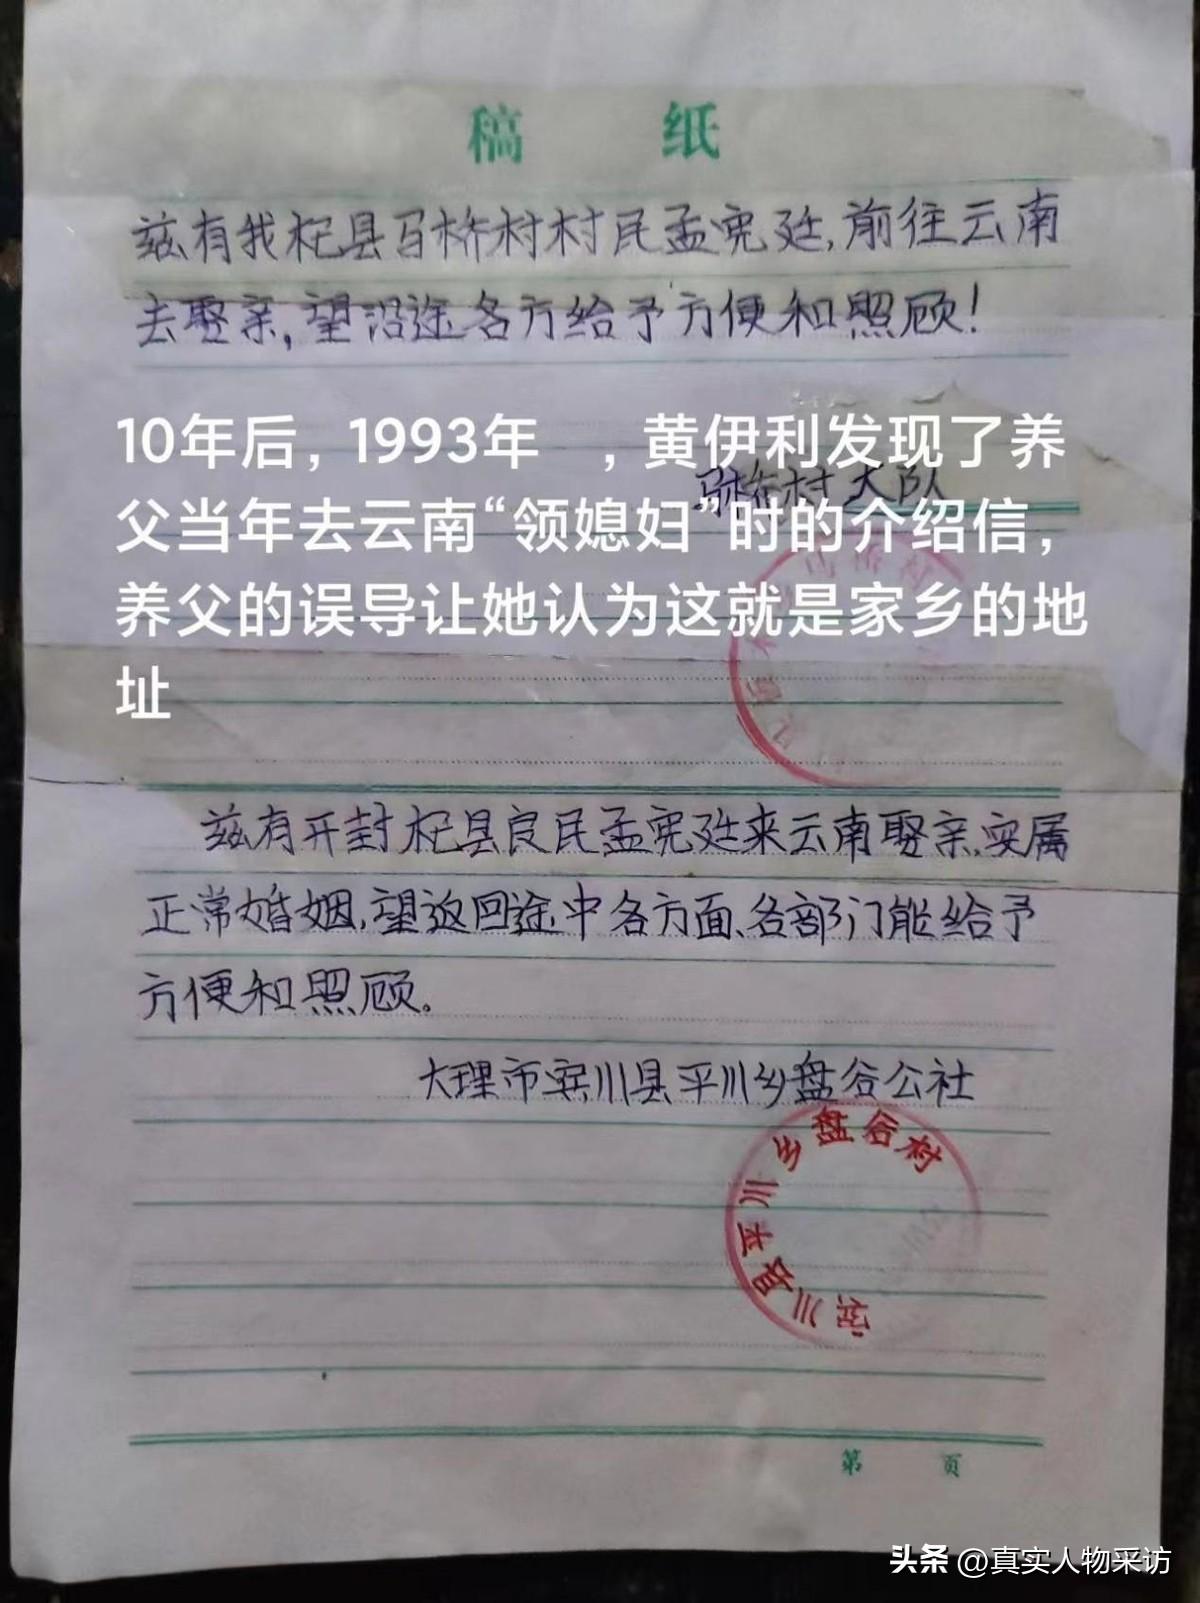 稿 纸
兹有我杞县百桥村村民孟宪廷,前往云南
去娶亲,望沿途各方给予方便和照顾!
10年后，1993年 ，黄伊利发现了养
桥村大队
父当年去云南“领媳妇”时的介绍信，
养父的误导让她认为这就是家乡的地
址
兹有开封杞县良民孟宪廷来云南娶亲,实属
正常婚姻,望返回途中各方面、各部门能给予
方便和照顾。
大理市宾川县平川乡盘谷公社
宾川县平川乡盘谷村
第 页
头条 @真实人物采访